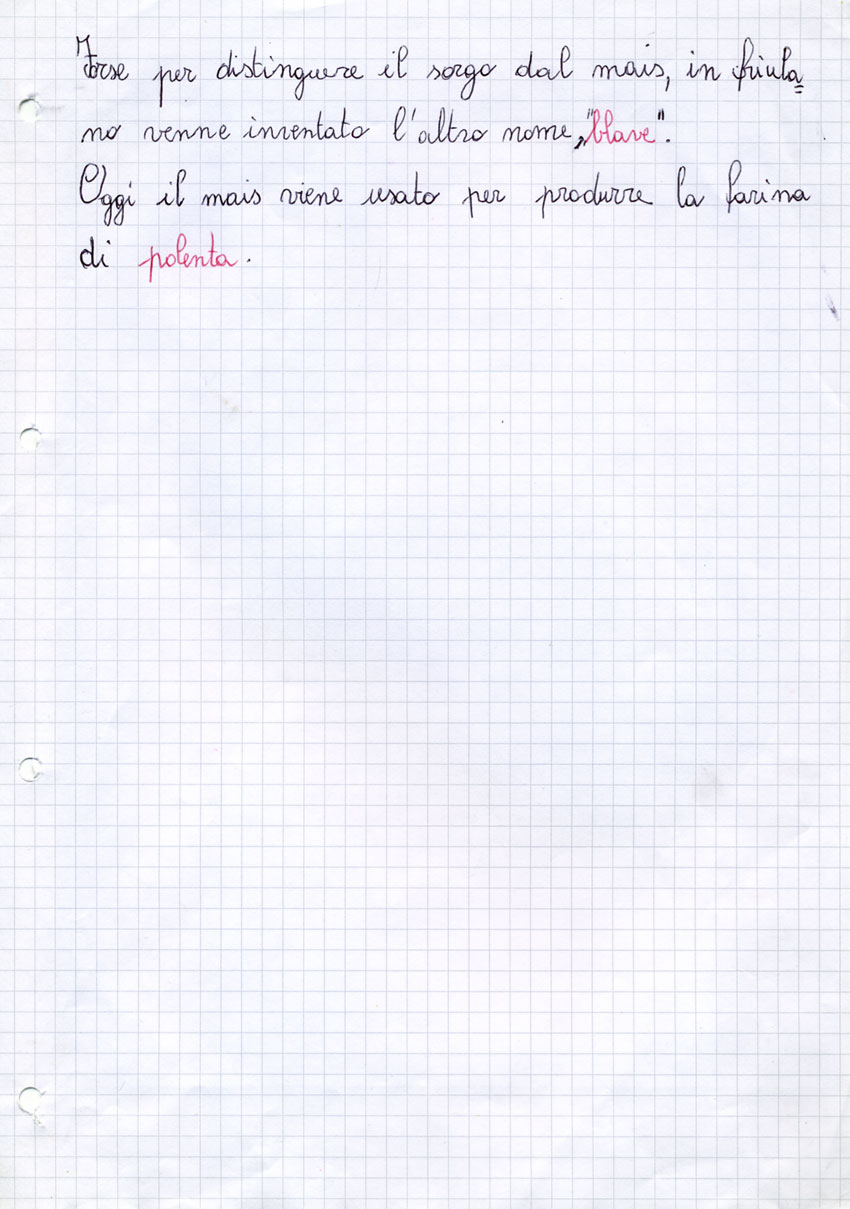 Forse per distinguere il sorgo dal mais, in friula=
no venne inventato l'altro nome,"blave".
Oggi il mais viene usato per produrre la farina
di polenta.